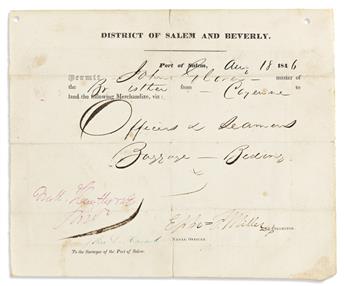 DISTRICT OF SALEM AND BEVERLY.
Port of Salem, Aug 18 1846
Permit John Glover master of
the Br Esther from Cayenne
to land the following Merchandize, viz:
Officers & Seamens
Baggage — Bedding
Nath Hawthorne
Ephm F. Miller COLLECTOR.
NAVAL OFFICER.
To the Surveyor of the Port of Salem.